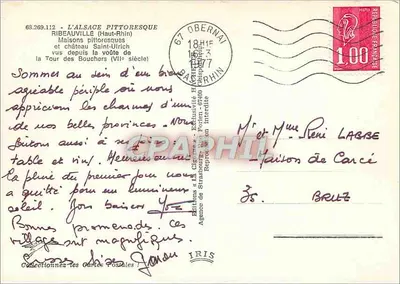 68.269.112 - L'ALSACE PITTORESQUE
RIBEAUVILLÉ (Haut-Rhin)
Maisons pittoresques
et château Saint-Ulrich
vus depuis la voûte de
la Tour des Bouchers (VIIe siècle)
Sommes au sein d'un bien
agréable périple où nous
apprécions les charmes d'une
de nos belles provinces. Nous
goûtons aussi à
table et vins. Heureusement
la pluie du premier jour nous
a quitté pour un lumineux
soleil. Bon baiser
Bonnes promenades. Ces
villages sont magnifiques.
Grosses bises
Collectionnez les Cartes Postales !
IRIS
67 OBERNAI
18H
1977
BAS-RHIN
POSTES
1.00
REPUBLIQUE FRANÇAISE
Mr et Mme René LABBE
Maison de Carcé
35 BRUZ
CPAPHIL.COM
Reproduction interdite